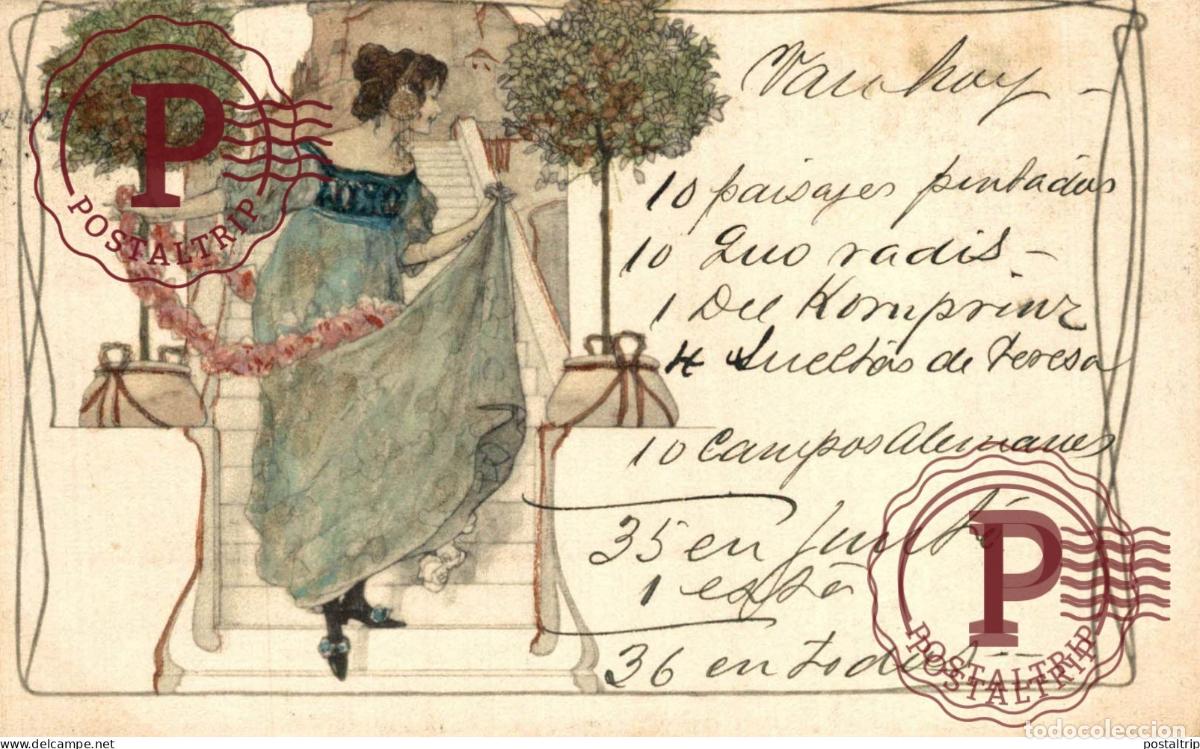 Van hoy -
10 paisajes pintados
10 Quo vadis -
1 Del Kornprinz
4 Sueltas de Teresa
10 Campos Alemanes
35 en junto
1 esta
36 en todas -
P
POSTALTRIP
P
POSTALTRIP
POSTALTRIP
todocoleccion
www.delcampe.net
postaltrip